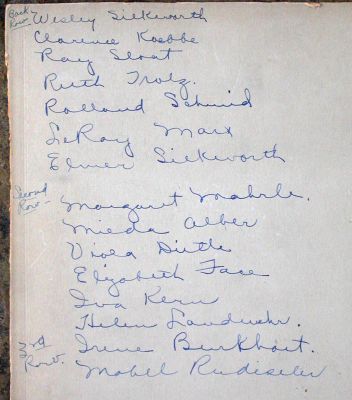 Back Row- Wesley Silkworth
Clarence Koebbe
Ray Sloat
Ruth Trolz.
Rolland Schmid
LeRoy Marx
Elmer Silkworth
Second Row- Margaret Mahrle.
Mieda Alber
Viola Dietle
Elizabeth Face
Iva Kern
Helen Landwehr.
3rd Row. Irene Burkhart.
Mabel Rudisiler